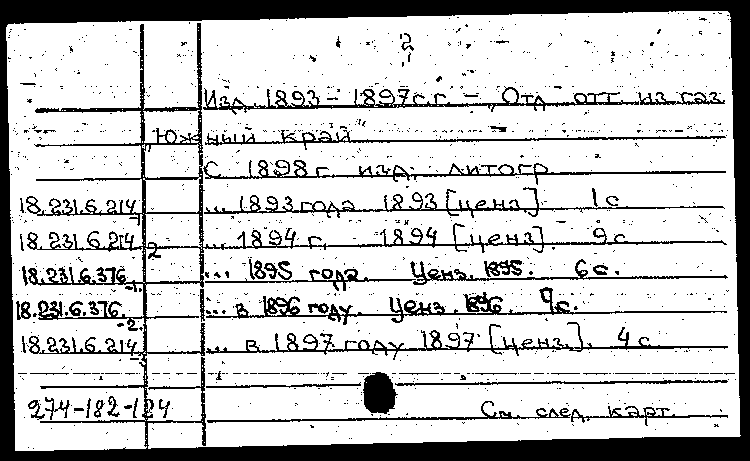 2
Изд. 1893 – 1897 г.г. – „Отд. отт. из газ.
„Южный край"
С 1898 г. изд. литогр.
18.231.6.214 1 ... 1893 года 1893 [ценз]. 1 с.
18.231.6.214 2 ... 1894 г. 1894 [ценз]. 9 с.
18.231.6.376 -1. ... 1895 года. Ценз. 1895. 6 с.
18.231.6.376. -2. ... в 1896 году. Ценз. 1896. 9 с.
18.231.6.214 3 ... в 1897 году 1897 [ценз.]. 4 с.
274-182-184 См. след. карт.